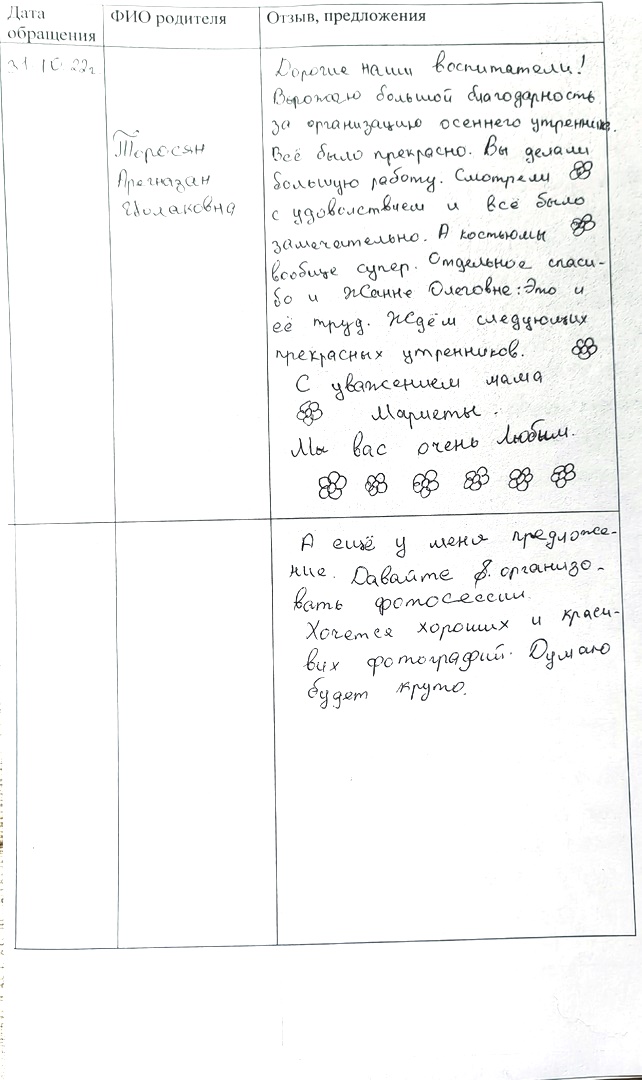 Дата обращения
ФИО родителя
Отзыв, предложения
31.10.22г
Торосян
Дорогие наши воспитатели!
Выражаю большой благодарность
за организацию осеннего утренника.
Всё было прекрасно. Вы делали
большую работу. Смотрели
с удовольствием и всё было
замечательно. А костюмы
вообще супер. Отдельное спаси-
бо и Жанне Олеговне: Это и
её труд. Ждём следующих
прекрасных утренников.
С уважением мама
Мариеты.
Мы вас очень Любим.
А ещё у меня предложе-
ние. Давайте организо-
вать фотосессии.
Хочется хороших и краси-
вих фотографий. Думаю
будет круто.